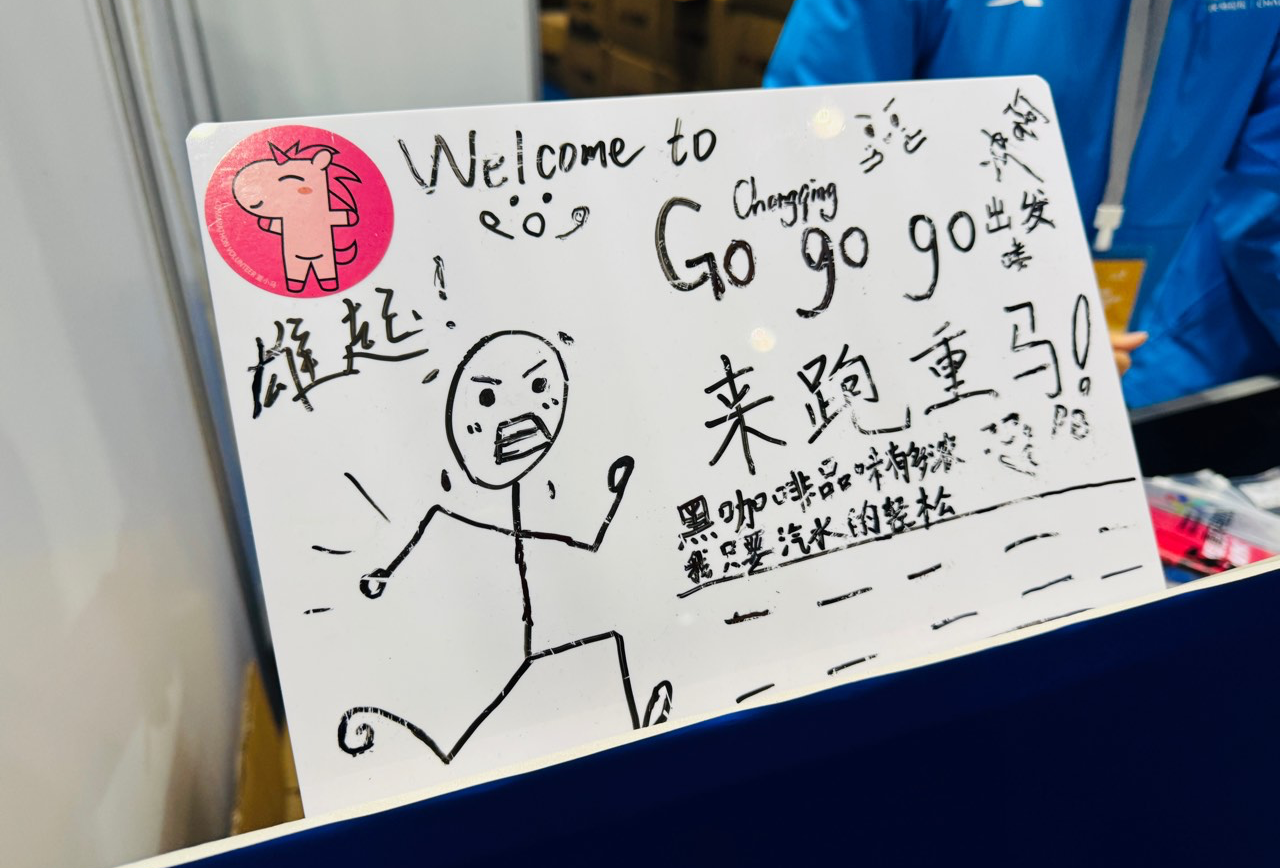 Welcome to
Chongqing
Go go go
出发
喽
雄起!
来跑重马!
PB
黑咖啡品味有多浓
我只要汽水的轻松